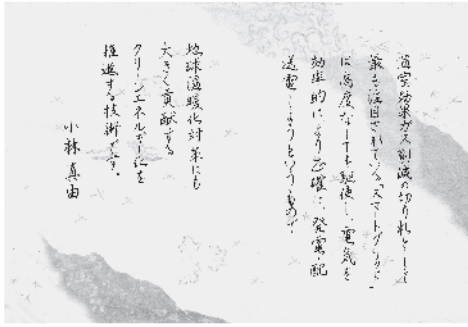 温室効果ガス削減の切り札として
最も注目されている「スマートグリッド」
は高度なITを駆使し、電気を
効率的に、より正確に、発電・配
送電しようというもので
地球温暖化対策にも
大きく貢献する
クリーンエネルギー化を
推進する技術です。
小林真由